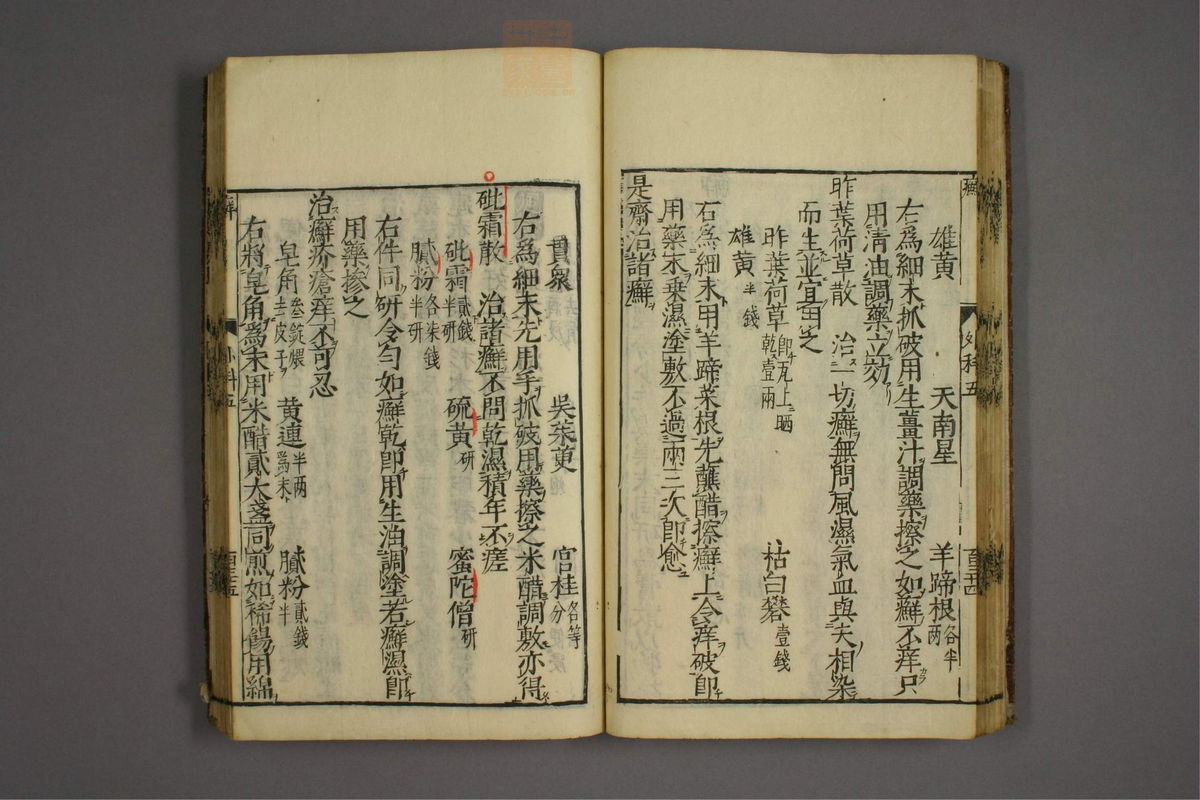 癬
外科五
雄黄　天南星　羊蹄根各半兩
右爲細末抓破用生薑汁調藥擦之如癬不痒只
用清油調藥立効
昨葉荷草散　治一切癬無問風濕氣血與夫相染
而生並宜用之
昨葉荷草即瓦上晒乾壹兩　枯白礬壹錢
雄黄半錢
右爲細末用羊蹄菜根先蘸醋擦癬上令痒破即
用藥末乗濕塗敷不過兩三次即愈
是齋治諸癬
貫衆　吳茱萸　官桂各等分
右爲細末先用手抓破用藥擦之米醋調敷亦得
砒霜散　治諸癬不問乾濕積年不瘥
砒霜貳錢半研　硫黄研　蜜陀僧研
膩粉各柒錢半研
右件同研令勻如癬乾即用生油調塗若癬濕即
用藥摻之
治癬疥瘡痒不可忍
皂角叁錠煨去皮子　黄連半兩爲末　膩粉貳錢半
右將皂角爲末用米醋貳大盞同煎如稀餳用綿